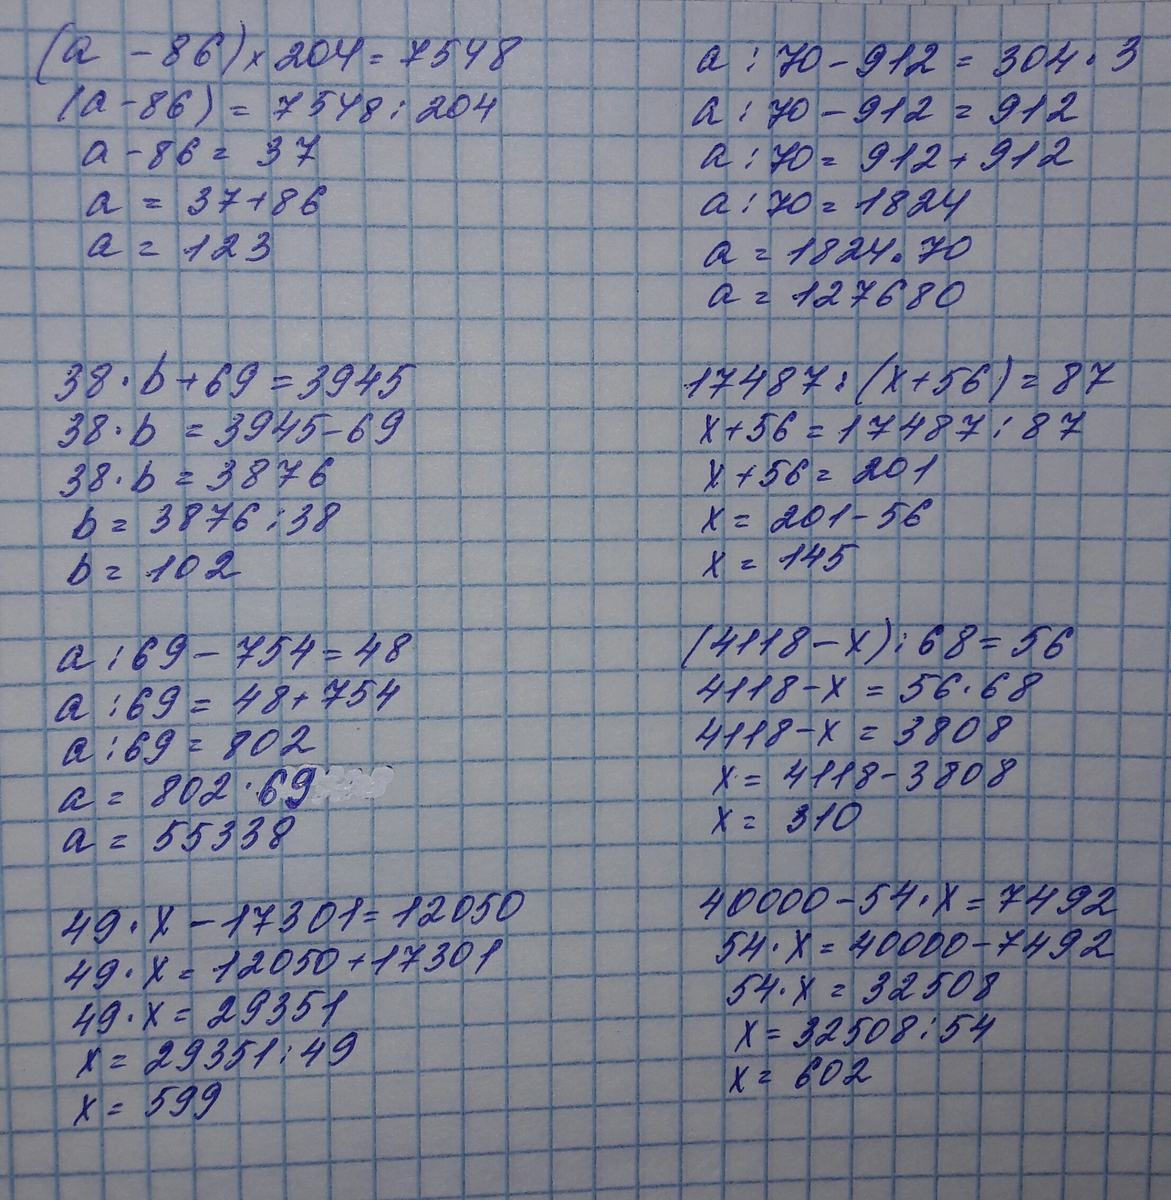 (a - 86) × 204 = 7548
(a - 86) = 7548 : 204
a - 86 = 37
a = 37 + 86
a = 123
38 · b + 69 = 3945
38 · b = 3945 - 69
38 · b = 3876
b = 3876 : 38
b = 102
a : 69 - 754 = 48
a : 69 = 48 + 754
a : 69 = 802
a = 802 · 69
a = 55338
49 · x - 17301 = 12050
49 · x = 12050 + 17301
49 · x = 29351
x = 29351 : 49
x = 599
a : 70 - 912 = 304 · 3
a : 70 - 912 = 912
a : 70 = 912 + 912
a : 70 = 1824
a = 1824 · 70
a = 127680
17487 : (x + 56) = 87
x + 56 = 17487 : 87
x + 56 = 201
x = 201 - 56
x = 145
(4118 - x) : 68 = 56
4118 - x = 56 · 68
4118 - x = 3808
x = 4118 - 3808
x = 310
40000 - 54 · x = 7492
54 · x = 40000 - 7492
54 · x = 32508
x = 32508 : 54
x = 602